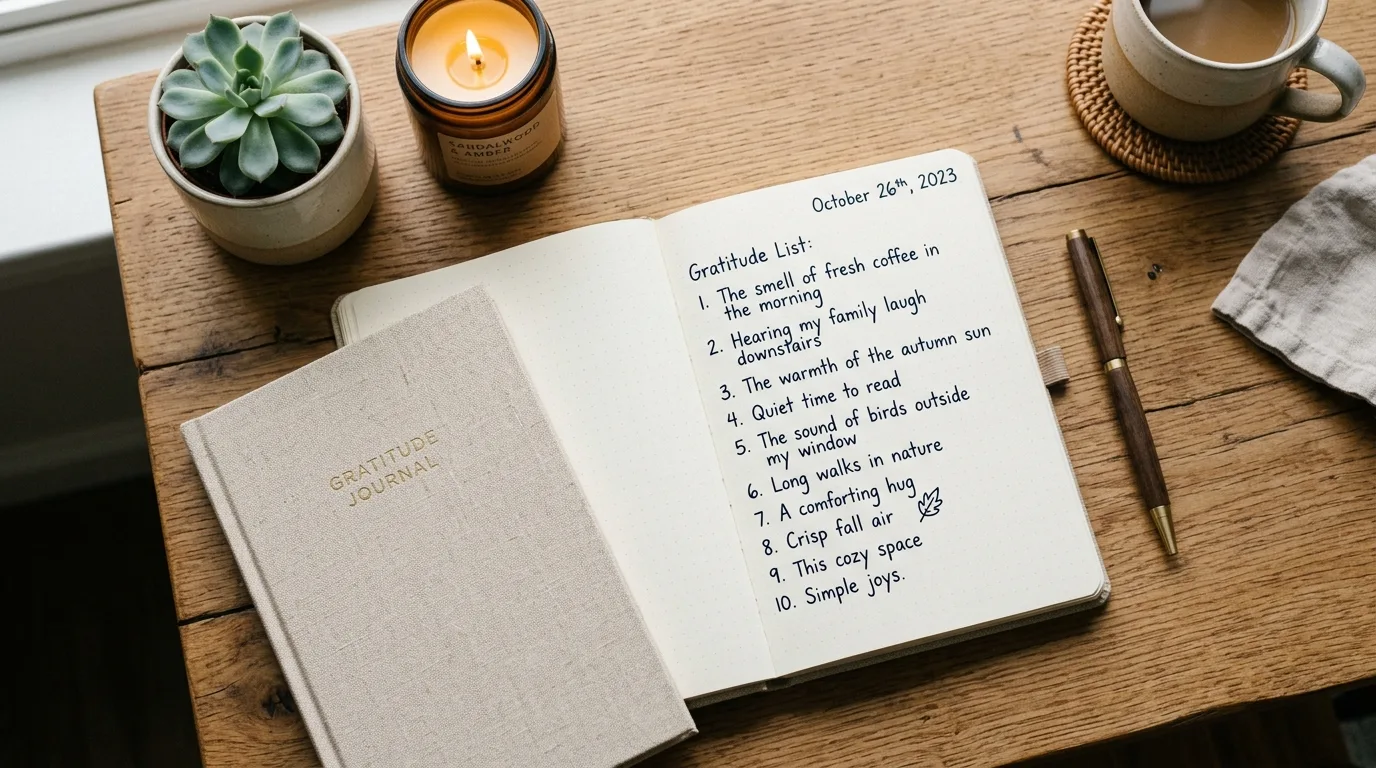 SANDALWOOD
& AMBER
GRATITUDE
JOURNAL
October 26th, 2023
Gratitude List:
1. The smell of fresh coffee in
the morning
2. Hearing my family laugh
downstairs
3. The warmth of the autumn sun
4. Quiet time to read
5. The sound of birds outside
my window
6. Long walks in nature
7. A comforting hug
8. Crisp fall air
9. This cozy space
10. Simple joys.